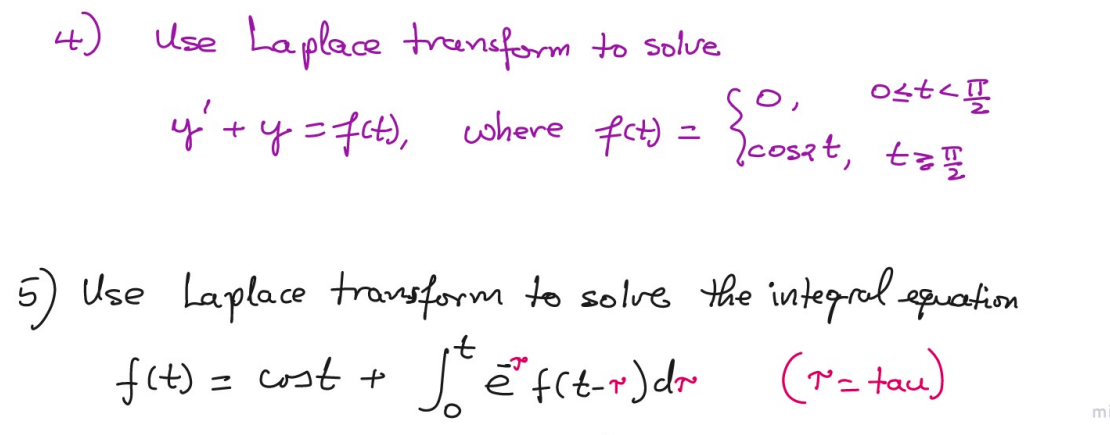 4) Use Laplace transform to solve
y' + y = f(t), where f(t) = { 0, 0≤t<π/2
cos2t, t≥π/2
5) Use Laplace transform to solve the integral equation
f(t) = cost + ∫₀ᵗ e^-τ f(t-τ)dτ (τ = tau)
mi